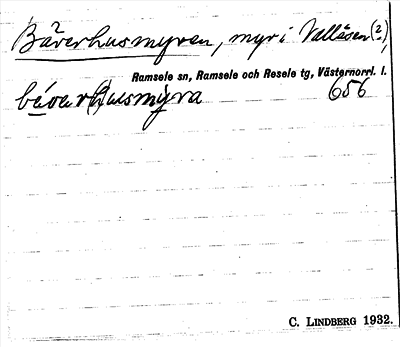 Bäverhusmyren, myr i Vallåsen (2),
Ramsele sn, Ramsele och Resele tg, Västernorrl. l.
béver(h)usmyra 656
C. LINDBERG 1932.